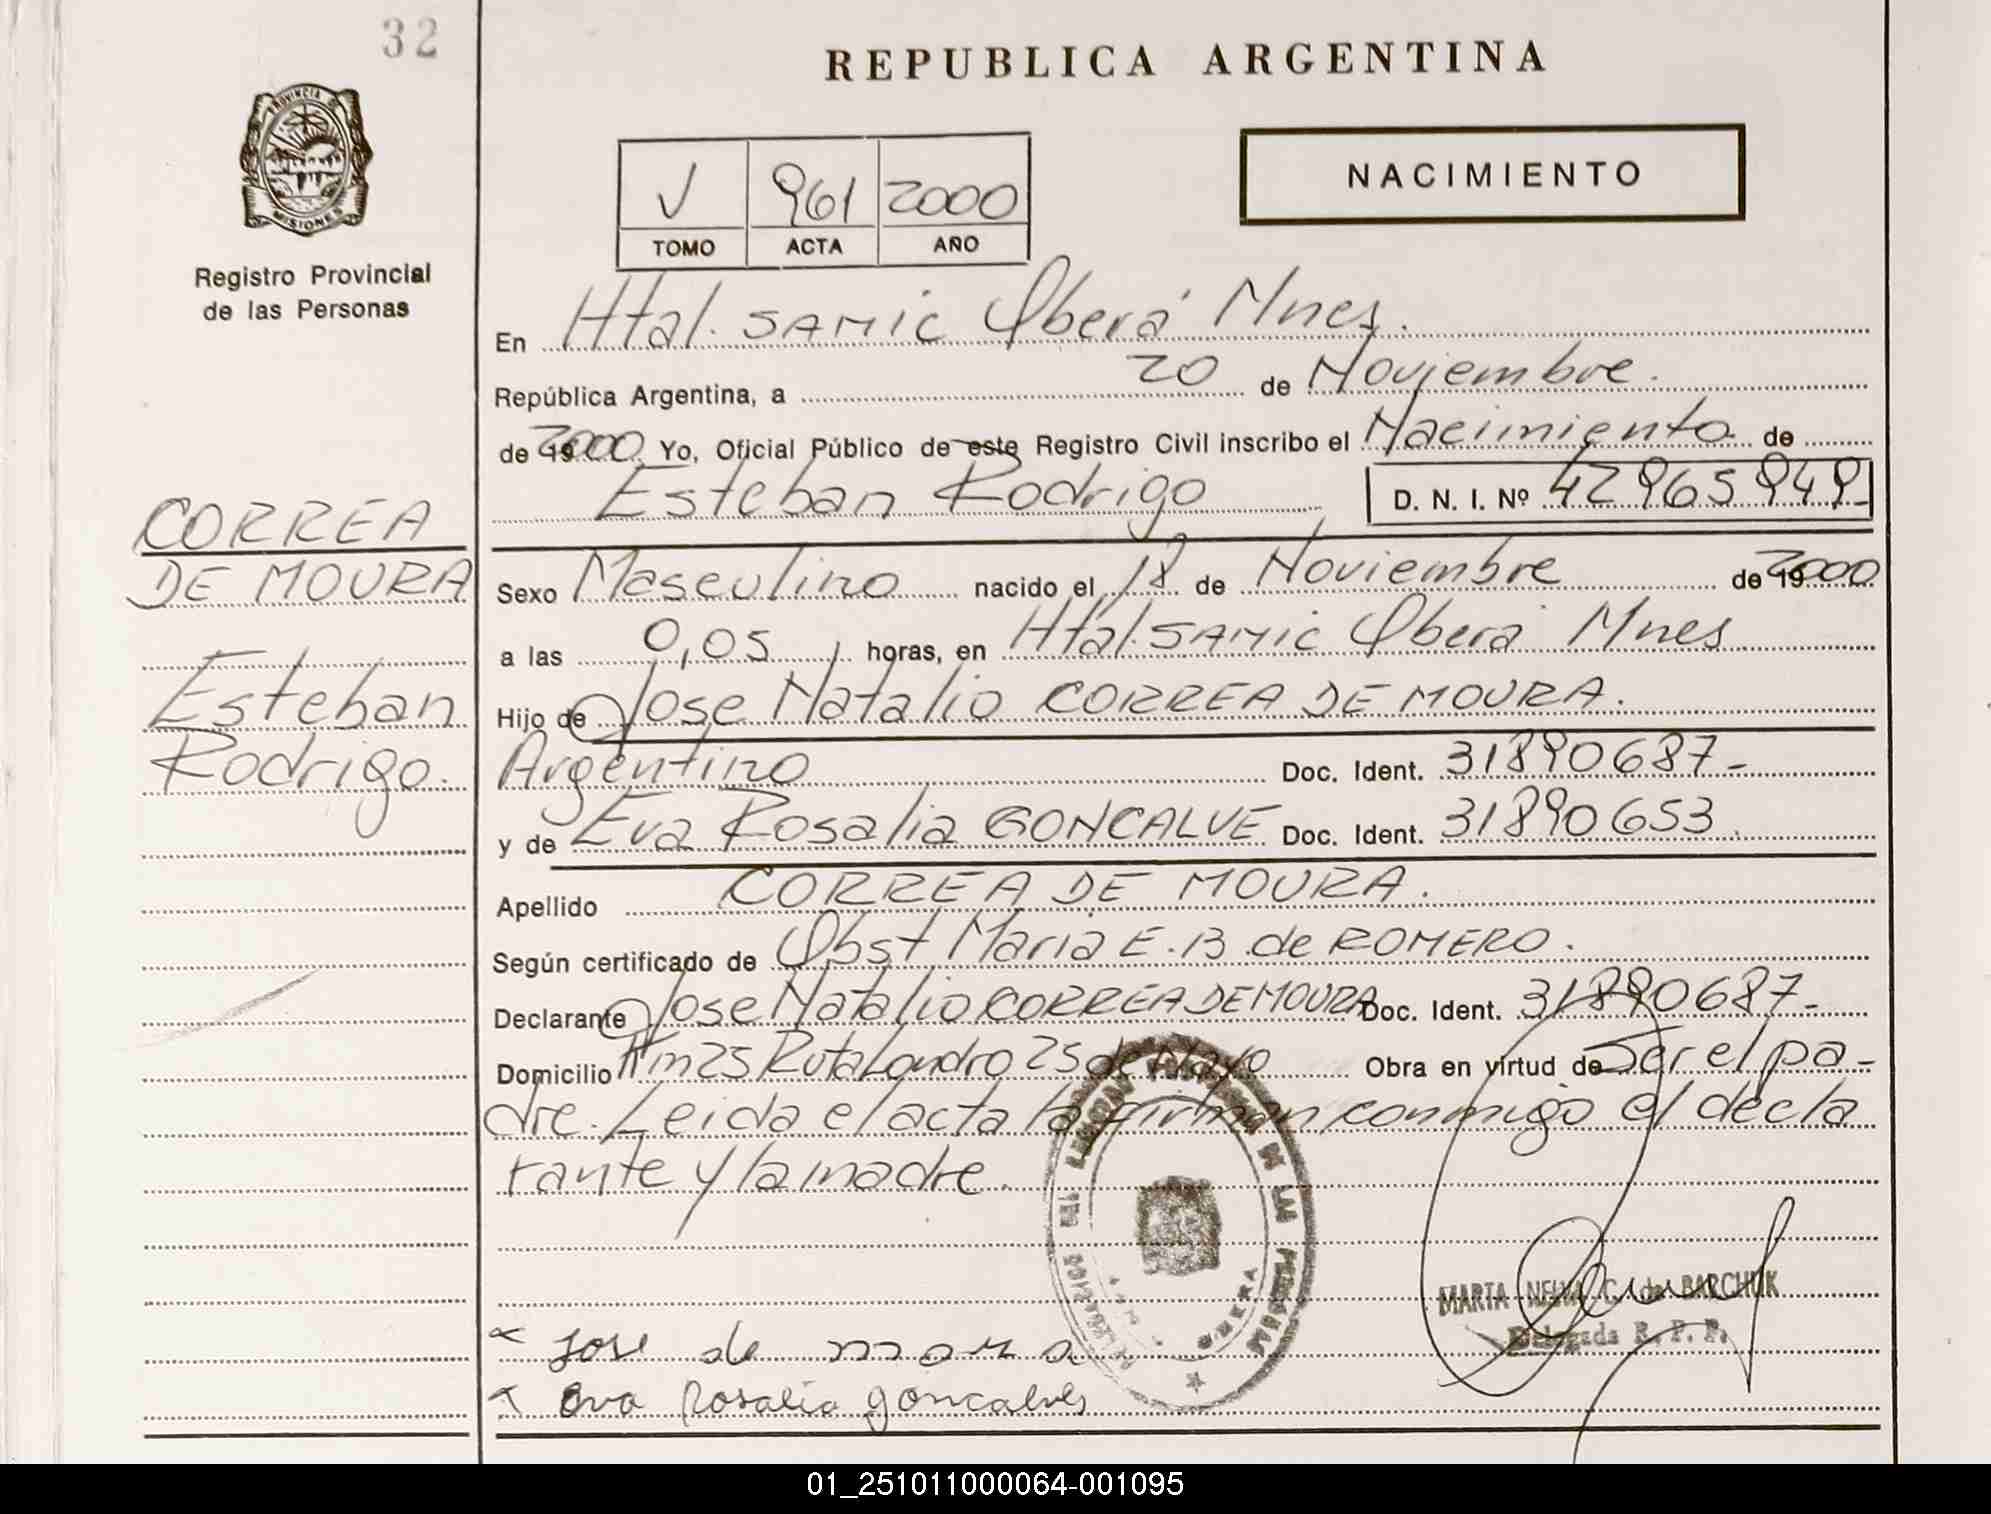 32
REPUBLICA ARGENTINA
PROVINCIA DE
MISIONES
Registro Provincial
de las Personas
NACIMIENTO
V 961 2000
TOMO ACTA AÑO
En Htal. SAMIC Oberá Mnes.
República Argentina, a 20 de Noviembre.
de 2000 Yo, Oficial Público de este Registro Civil inscribo el Nacimiento de
Esteban Rodrigo D. N. I. Nº 42965949-
CORREA
DE MOURA
Esteban
Rodrigo.
Sexo Masculino nacido el 18 de Noviembre de 2000
a las 0,05 horas, en Htal. SAMIC Oberá Mnes
Hijo de Jose Natalio CORREA DE MOURA.
Argentino Doc. Ident. 31890687-
y de Eva Rosalia GONCALVE Doc. Ident. 31890653.
Apellido CORREA DE MOURA.
Según certificado de Obst Maria E. B. de ROMERO.
Declarante Jose Natalio CORREA DE MOURA Doc. Ident. 31890687-
Domicilio Km 25 Ruta Leandro 25 de Mayo Obra en virtud de Ser el pa-
dre. Leida el acta la firman conmigo el decla
rante y la madre.
MARTA NELIDA C. de BARCHUK
Delegada R. P. P.
DE LAS PERSONAS
OBERA
x Jose de mora
x Eva Rosalia goncalves
01_251011000064-001095